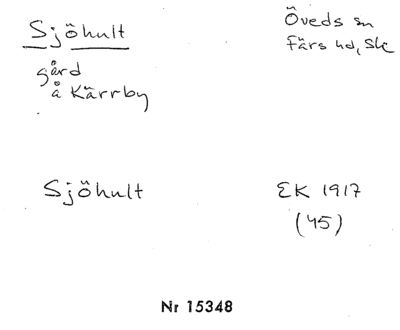 Sjöhult
Öveds sn
Färs hd, Sk
gård
å Kärrby
Sjöhult
EK 1917
(45)
Nr 15348